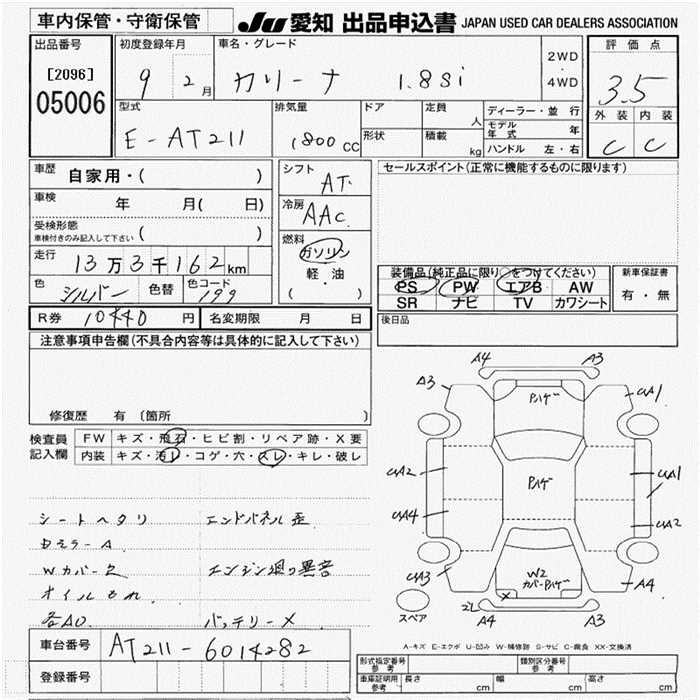 車内保管・守衛保管
JU 愛知 出品申込書 JAPAN USED CAR DEALERS ASSOCIATION
出品番号
[2096]
05006
初度登録年月
9 2 月
車名・グレード
カリーナ 1.8Si
2WD
・
4WD
評価点
3.5
外装 内装
C C
型式
E-AT211
排気量
1800 CC
ドア
形状
定員 人
積載 kg
ディーラー・並行
モデル年式 年
ハンドル 左・右
車歴 自家用・( )
車検 年 月( 日)
受検形態
車検付きのみ記入して下さい ( )
走行
13万3千162km
色 シルバー 色替 色コード 199
シフト
AT
冷房
AAC
燃料
ガソリン
軽・油
( )
セールスポイント(正常に機能するものに限ります)
装備品(純正品に限り○をつけてください)
PS PW エアB AW
SR ナビ TV カワシート
新車保証書
有・無
R券 10440 円 名変期限 月 日
後日品
注意事項申告欄(不具合内容等は具体的に記入して下さい)
修復歴 有 〔箇所 〕
検査員記入欄
FW キズ・飛石・ヒビ割・リペア跡・X要
内装 キズ・汚レ・コゲ・穴・スレ・キレ・破レ
シートヘタリ エンドパネル歪
Dミラー A
Wカバー欠 エンジン廻り異音
オイルもれ
各AU バッテリーX
A4 A3
A3 UA1
Pハゲ
UA2 UA1
Pハゲ
UA4 UA2
UA3 A4
W2
カバーPハゲ
X
A4 A3
スペア
A-キズ E-エクボ U-凹み W-補修跡 S-サビ C-腐食 XX-交換済
車台番号 AT211-6014282
登録番号
形式指定番号 参考
類別区分番号 参考
車庫証明用 参考 長さ cm 幅 cm 高さ cm